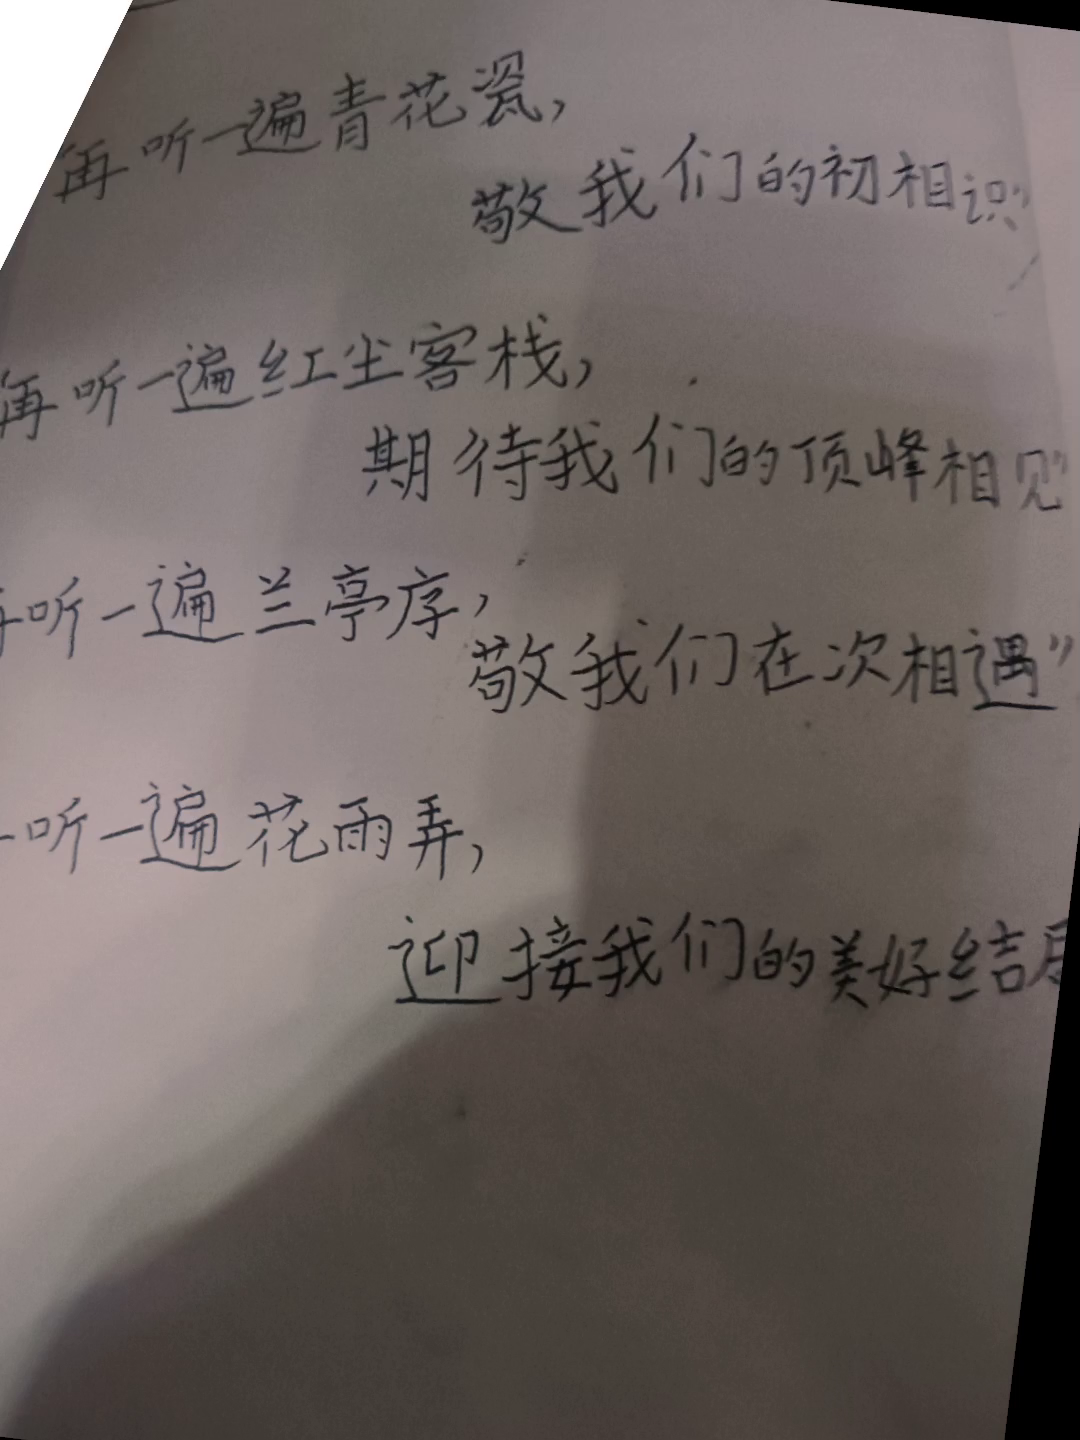 再听一遍青花瓷,
敬我们的初相识”
再听一遍红尘客栈,
期待我们的顶峰相见”
听一遍兰亭序,
敬我们在次相遇”
听一遍花雨弄,
迎接我们的美好结